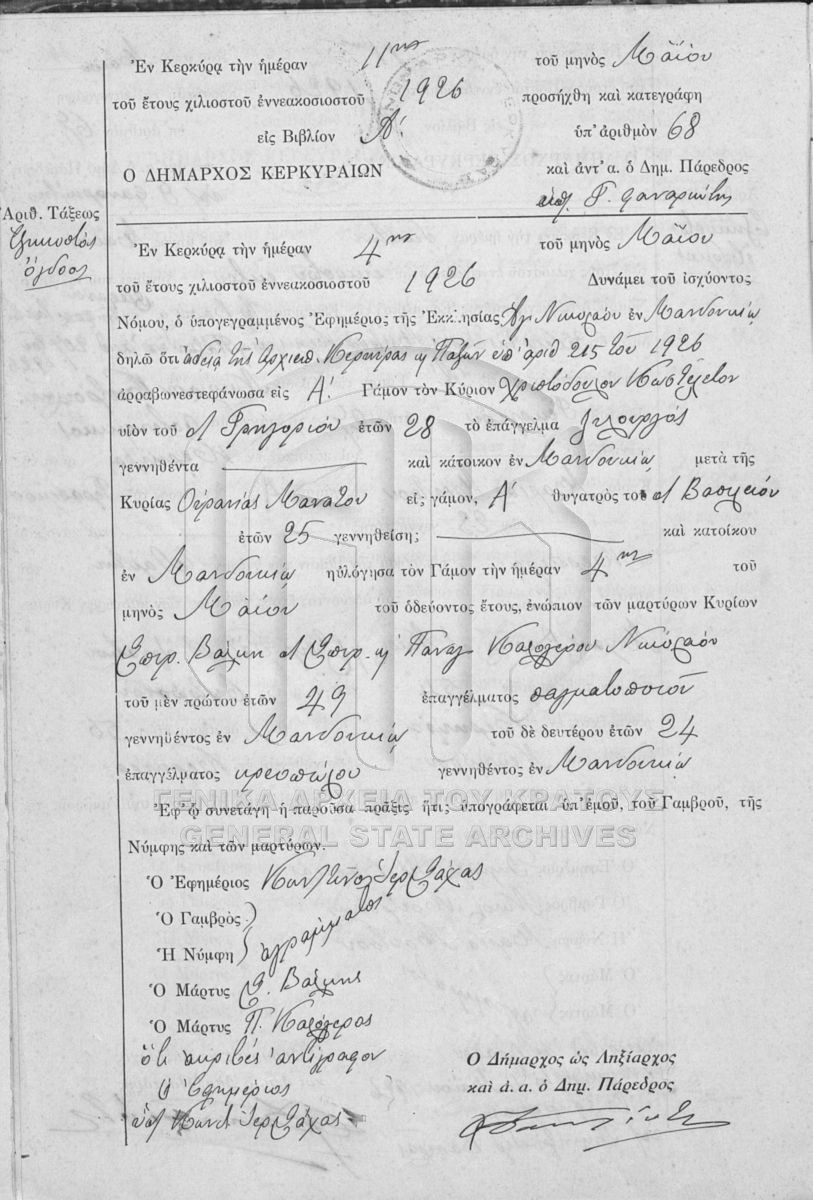 Ἐν Κερκύρᾳ τὴν ἡμέραν 11ης τοῦ μηνὸς Μαΐου
τοῦ ἔτους χιλιοστοῦ ἐννεακοσιοστοῦ 1926 προσήχθη καὶ κατεγράφη
εἰς Βιβλίον Α΄ ὑπ' ἀριθμὸν 68
Ο ΔΗΜΑΡΧΟΣ ΚΕΡΚΥΡΑΙΩΝ καὶ ἀντ' α. ὁ Δημ. Πάρεδρος
Γ. Φαναριώτης
Ἀριθ. Τάξεως
Εἰκοστὸς
ὄγδοος
Ἐν Κερκύρᾳ τὴν ἡμέραν 4ης τοῦ μηνὸς Μαΐου
τοῦ ἔτους χιλιοστοῦ ἐννεακοσιοστοῦ 1926 Δυνάμει τοῦ ἰσχύοντος
Νόμου, ὁ ὑπογεγραμμένος Ἐφημέριος τῆς Ἐκκλησίας Ἁγ Νικολάου ἐν Μανδουκίῳ
δηλῶ ὅτι ἀδείᾳ τῆς Ἀρχιεπ. Κερκύρας κ Παξῶν ὑπ' ἀριθ 215 τοῦ 1926
ἀρραβωνεστεφάνωσα εἰς Α΄ Γάμον τὸν Κύριον Χριστόδουλον Κωστελέτον
υἱὸν τοῦ Γρηγορίου ἐτῶν 28 τὸ ἐπάγγελμα ξυλουργὸς
γεννηθέντα καὶ κάτοικον ἐν Μανδουκίῳ μετὰ τῆς
Κυρίας Οὐρανίας Μανάτου εἰς γάμον, Α΄ θυγατρὸς του Βασιλείου
ἐτῶν 25 γεννηθείσης καὶ κατοίκου
ἐν Μανδουκίῳ ηὐλόγησα τὸν Γάμον τὴν ἡμέραν 4ης τοῦ
μηνὸς Μαΐου τοῦ ὁδεύοντος ἔτους, ἐνώπιον τῶν μαρτύρων Κυρίων
Σπυρ. Βάλμη Σπυρ. κ Παναγ Καλογέρου Νικολάου
τοῦ μὲν πρώτου ἐτῶν 49 ἐπαγγέλματος
γεννηθέντος ἐν Μανδουκίῳ τοῦ δὲ δευτέρου ἐτῶν 24
ἐπαγγέλματος κρεοπώλου γεννηθέντος ἐν Μανδουκίῳ
ΓΕΝΙΚΑ ΑΡΧΕΙΑ ΤΟΥ ΚΡΑΤΟΥΣ
Ἐφ' ᾧ συνετάγη ἡ παροῦσα πρᾶξις ἥτις ὑπογράφεται ὑπ' ἐμοῦ, τοῦ Γαμβροῦ, τῆς
GENERAL STATE ARCHIVES
Νύμφης καὶ τῶν μαρτύρων.
Ὁ Ἐφημέριος
Ὁ Γαμβρὸς
Ἡ Νύμφη ἀγράμματοι
Ὁ Μάρτυς Σ. Βάλμης
Ὁ Μάρτυς Π. Καλόγερος
Ὅτι ἀκριβὲς ἀντίγραφον
Ὁ Ἐφημέριος
Ὁ Δήμαρχος ὡς Ληξίαρχος
καὶ ἀ. α. ὁ Δημ. Πάρεδρος